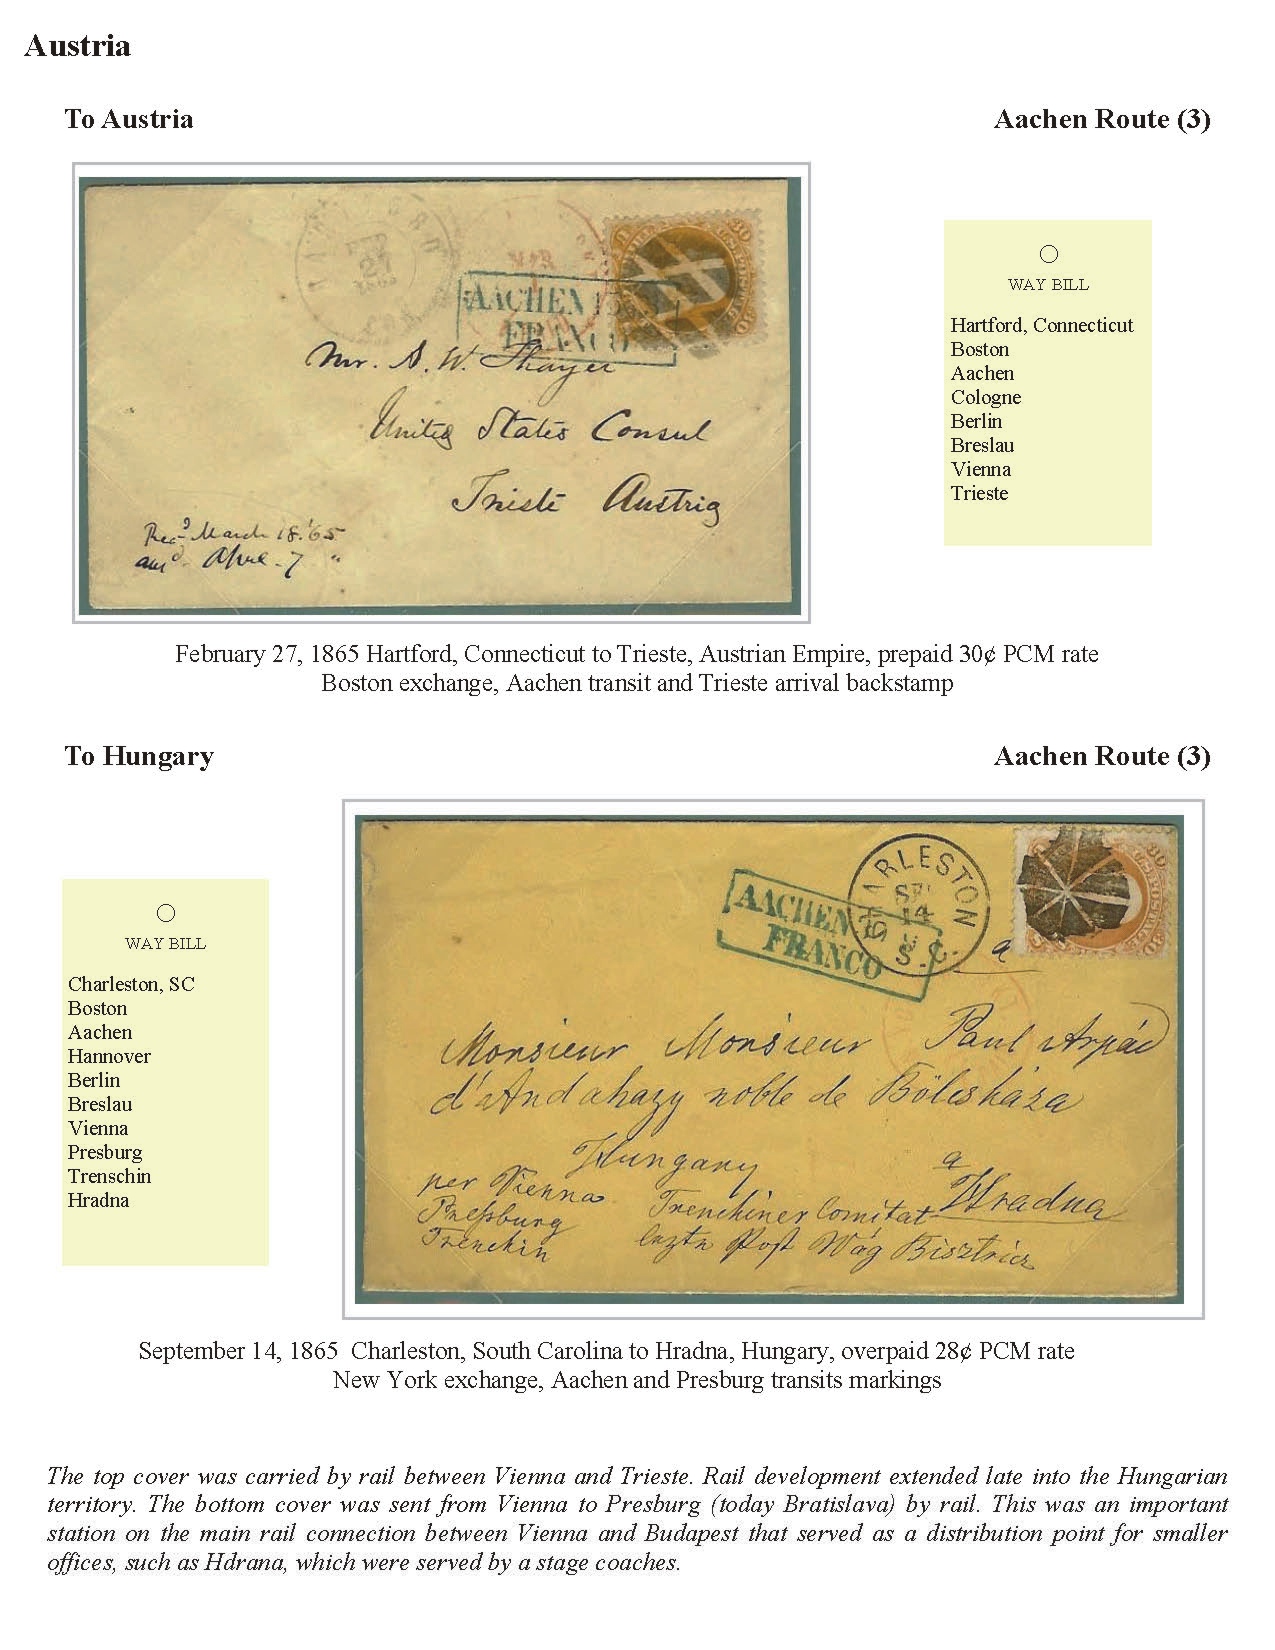 Austria
To Austria
Aachen Route (3)
FEB
27
MAR
30
AACHEN
FRANCO
Mr. A. W. Thayer
United States Consul
Trieste Austria
Recd March 18. '65
ansd. April 7 "
WAY BILL
Hartford, Connecticut
Boston
Aachen
Cologne
Berlin
Breslau
Vienna
Trieste
February 27, 1865 Hartford, Connecticut to Trieste, Austrian Empire, prepaid 30¢ PCM rate
Boston exchange, Aachen transit and Trieste arrival backstamp
To Hungary
Aachen Route (3)
WAY BILL
Charleston, SC
Boston
Aachen
Hannover
Berlin
Breslau
Vienna
Presburg
Trenschin
Hradna
CHARLESTON
SEP
14
S.C.
30
AACHEN
FRANCO
a
Monsieur Monsieur Paul Arpád
d'Andahazy noble de Bölcsháza
Hungary a Hradna
per Vienna
Preßburg
Trenchin
Trenchiner Comitat
lezte Post Wág Bisztricz
September 14, 1865 Charleston, South Carolina to Hradna, Hungary, overpaid 28¢ PCM rate
New York exchange, Aachen and Presburg transits markings
The top cover was carried by rail between Vienna and Trieste. Rail development extended late into the Hungarian
territory. The bottom cover was sent from Vienna to Presburg (today Bratislava) by rail. This was an important
station on the main rail connection between Vienna and Budapest that served as a distribution point for smaller
offices, such as Hdrana, which were served by a stage coaches.